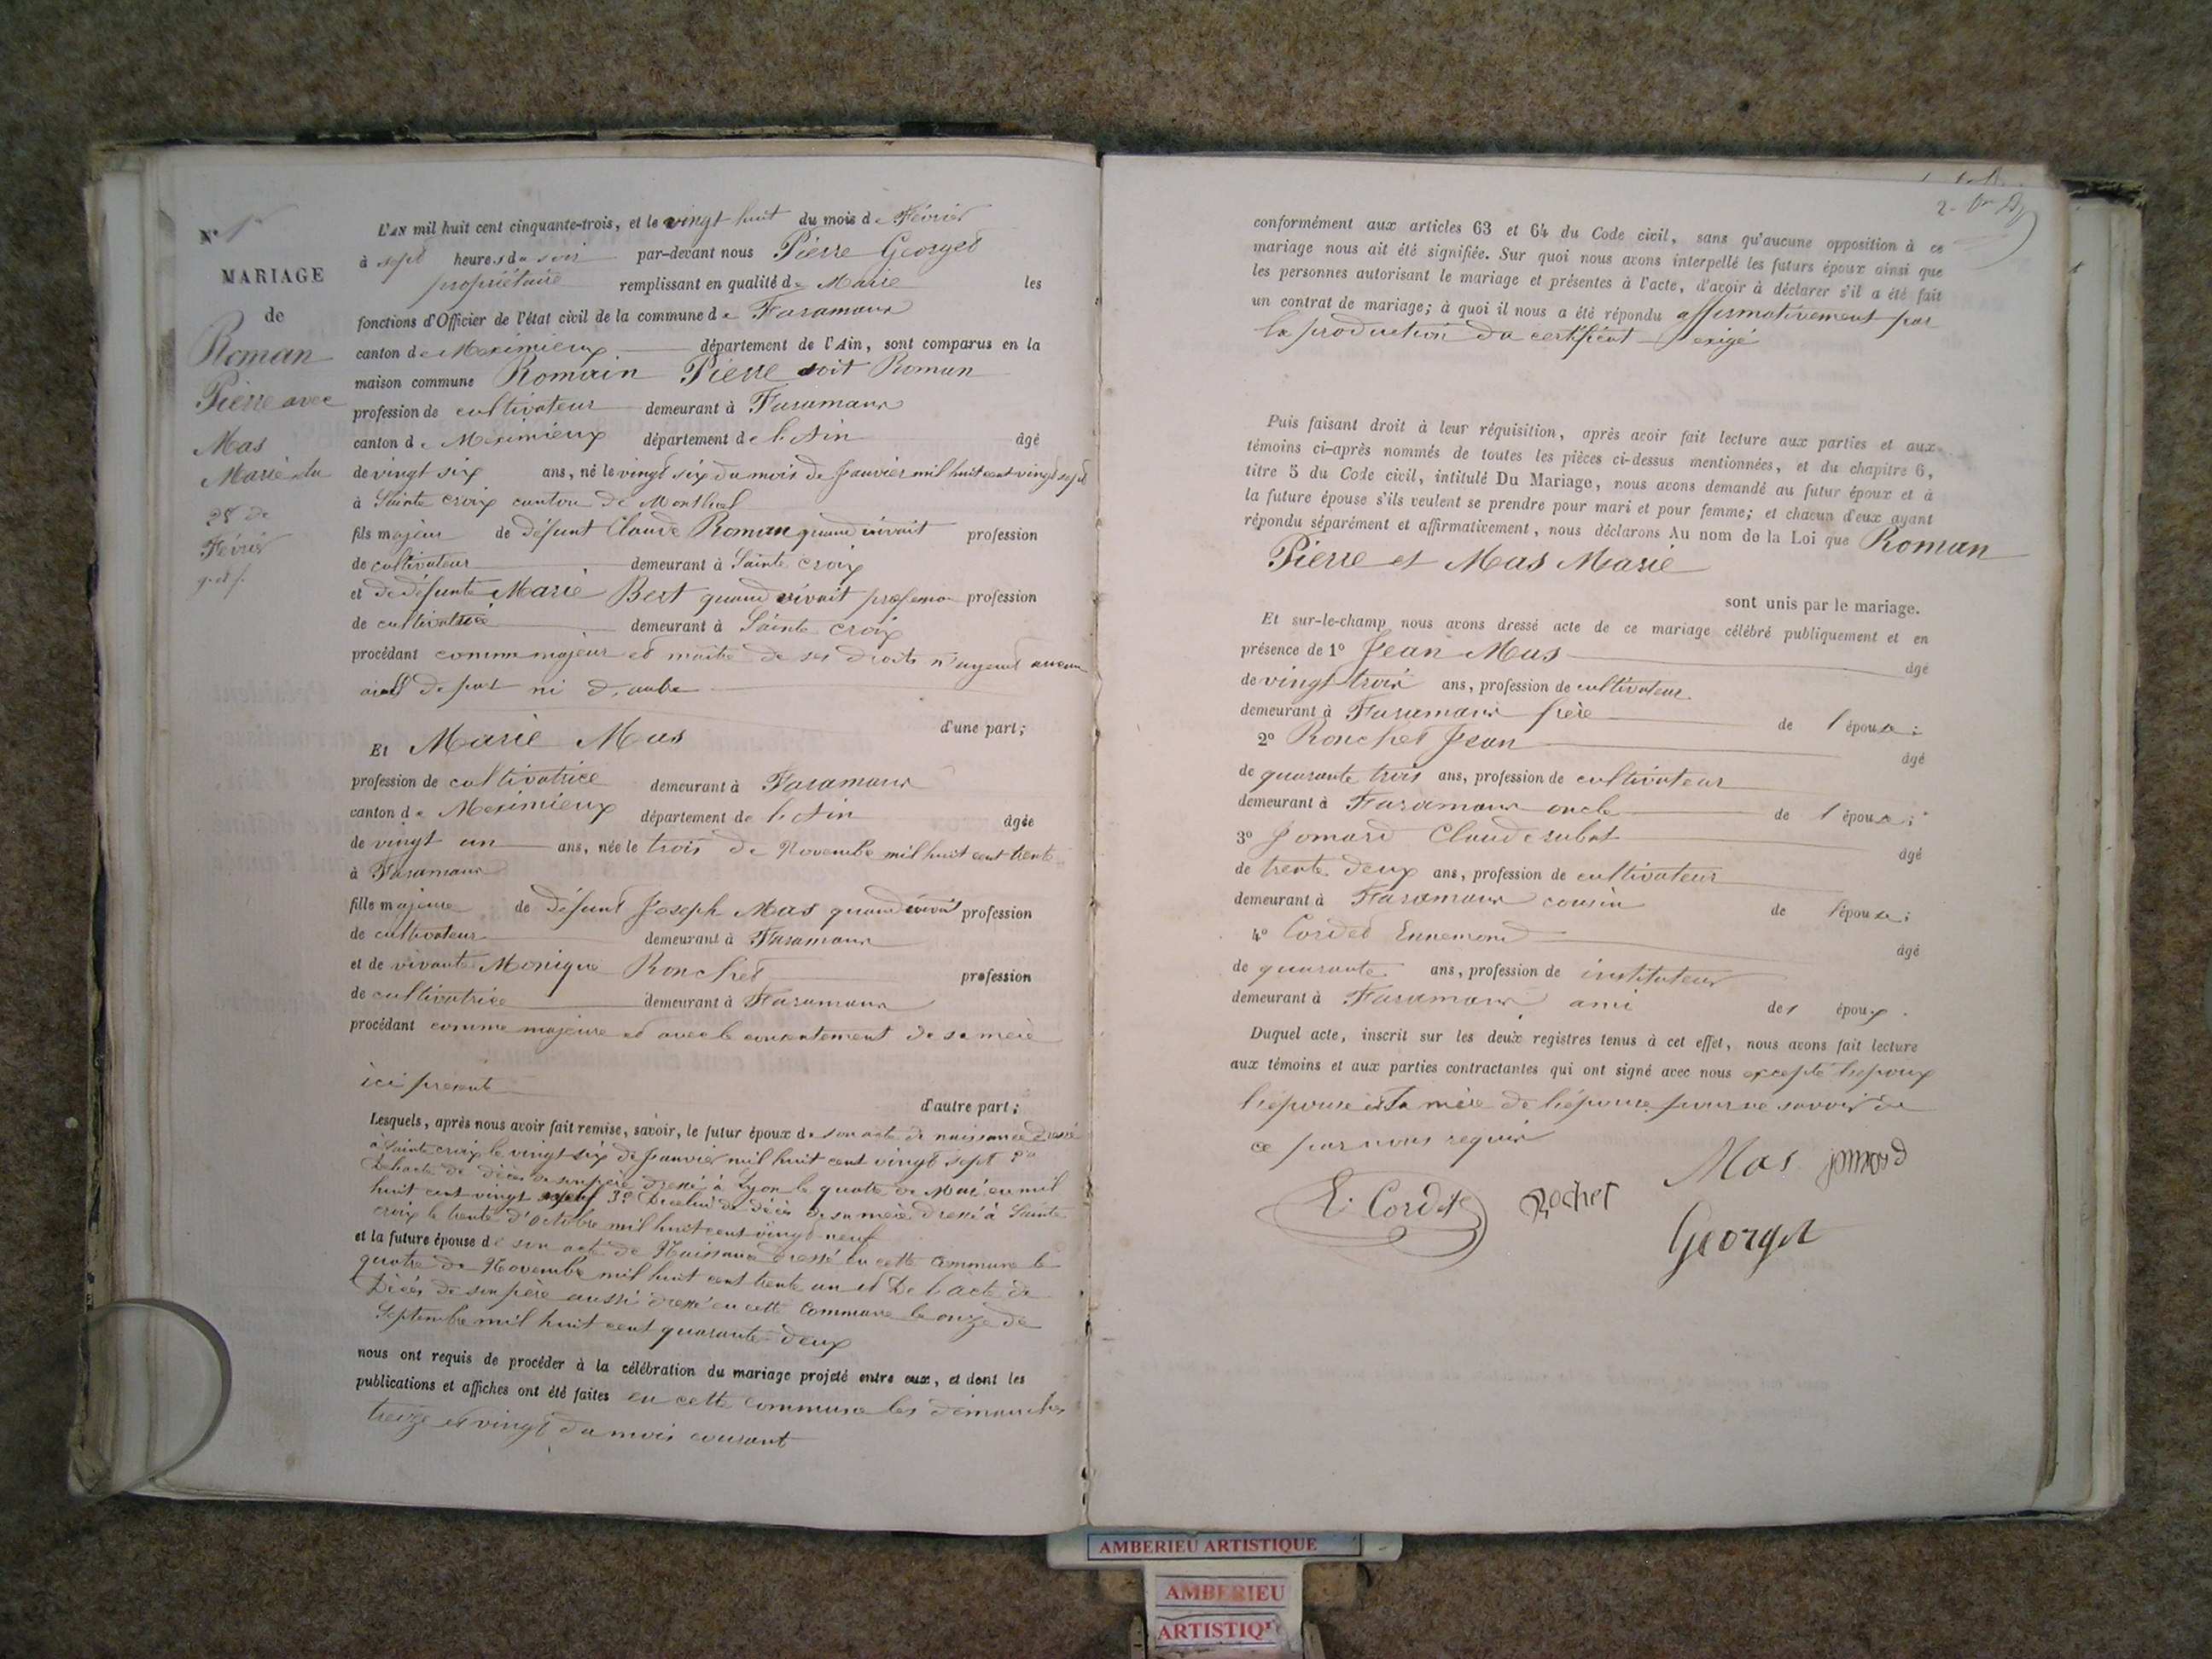 N° 1er
MARIAGE
de
Roman
Pierre avec
Mas
Marie du
28 de
Février
L'AN mil huit cent cinquante-trois, et le vingt huit du mois de Février
à sept heures du soir par-devant nous Pierre Georget
propriétaire remplissant en qualité de Maire les
fonctions d'Officier de l'état civil de la commune de Faramans
canton de Meximieux département de l'Ain, sont comparus en la
maison commune Romain Pierre soit Roman
profession de cultivateur demeurant à Faramans
canton de Meximieux département de l'Ain âgé
de vingt six ans, né le vingt six du mois de Janvier mil huit cent vingt sept
à Sainte Croix canton de Montluel
fils majeur de défunt Claude Roman quand vivait profession
de cultivateur demeurant à Sainte Croix
et de défunte Marie Bert quand vivait profession
de cultivatrice demeurant à Sainte Croix
procédant comme majeur et maitre de ses droits n'ayant aucun
aieul de part ni d'autre
d'une part;
Et Marie Mas
profession de cultivatrice demeurant à Faramans
canton de Meximieux département de l'Ain âgée
de vingt un ans, née le trois de Novembre mil huit cent trente
à Faramans
fille majeure de défunt Joseph Mas quand vivait profession
de cultivateur demeurant à Faramans
et de vivante Monique Ronchet profession
de cultivatrice demeurant à Faramans
procédant comme majeure et avec le consentement de sa mère
ici présente
d'autre part;
Lesquels, après nous avoir fait remise, savoir, le futur époux de son acte de naissance dressé
à Sainte croix le vingt six de Janvier mil huit cent vingt sept 2°
De l'acte de décès de son père dressé à Lyon le quatre de Mai en mil
huit cent vingt neuf 3° De celui de décès de sa mère dressé à Sainte
croix le trente d'Octobre mil huit cent vingt neuf
et la future épouse de son acte de Naissance dressé en cette Commune le
quatre de Novembre mil huit cent trente un et De l'acte de
Décès de son père aussi dressé en cette Commune le onze de
Septembre mil huit cent quarante deux
nous ont requis de procéder à la célébration du mariage projeté entre eux, et dont les
publications et affiches ont été faites en cette commune les dimanches
treize et vingt du mois courant
conformément aux articles 63 et 64 du Code civil, sans qu'aucune opposition à ce
mariage nous ait été signifiée. Sur quoi nous avons interpellé les futurs époux ainsi que
les personnes autorisant le mariage et présentes à l'acte, d'avoir à déclarer s'il a été fait
un contrat de mariage; à quoi il nous a été répondu affirmativement par
la production du certificat exigé
Puis faisant droit à leur réquisition, après avoir fait lecture aux parties et aux
témoins ci-après nommés de toutes les pièces ci-dessus mentionnées, et du chapitre 6,
titre 5 du Code civil, intitulé Du Mariage, nous avons demandé au futur époux et à
la future épouse s'ils veulent se prendre pour mari et pour femme; et chacun d'eux ayant
répondu séparément et affirmativement, nous déclarons Au nom de la Loi que Roman
Pierre et Mas Marie
sont unis par le mariage.
Et sur-le-champ nous avons dressé acte de ce mariage célébré publiquement et en
présence de 1° Jean Mas âgé
de vingt trois ans, profession de cultivateur
demeurant à Faramans frère de l'épouse;
2° Ronchet Jean âgé
de quarante trois ans, profession de cultivateur
demeurant à Faramans oncle de l'épouse;
3° Jomard Claude âgé
de trente deux ans, profession de cultivateur
demeurant à Faramans cousin de l'épouse;
4° Cordet Ennemond âgé
de quarante ans, profession de instituteur
demeurant à Faramans ami de l'époux.
Duquel acte, inscrit sur les deux registres tenus à cet effet, nous avons fait lecture
aux témoins et aux parties contractantes qui ont signé avec nous excepté l'époux
l'épouse et la mère de l'épouse pour ne savoir de
ce par nous requis
Mas Jomard
E. Cordet Rochet
Georget
AMBERIEU ARTISTIQUE
AMBERIEU
ARTISTIQ